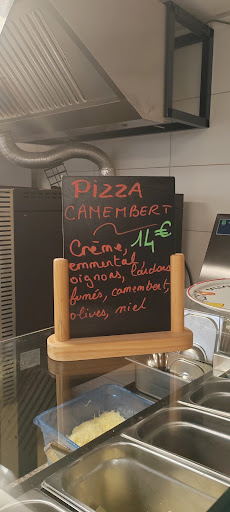 PIZZA
CAMEMBERT
Crème, 14€
emmental,
oignons, lardons
fumés, camembert,
olives, miel